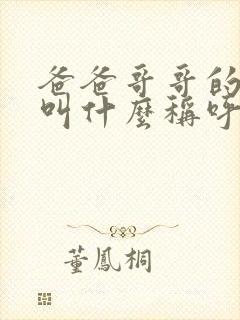 爸爸哥哥的
叫什麼稱呼
董鳳桐